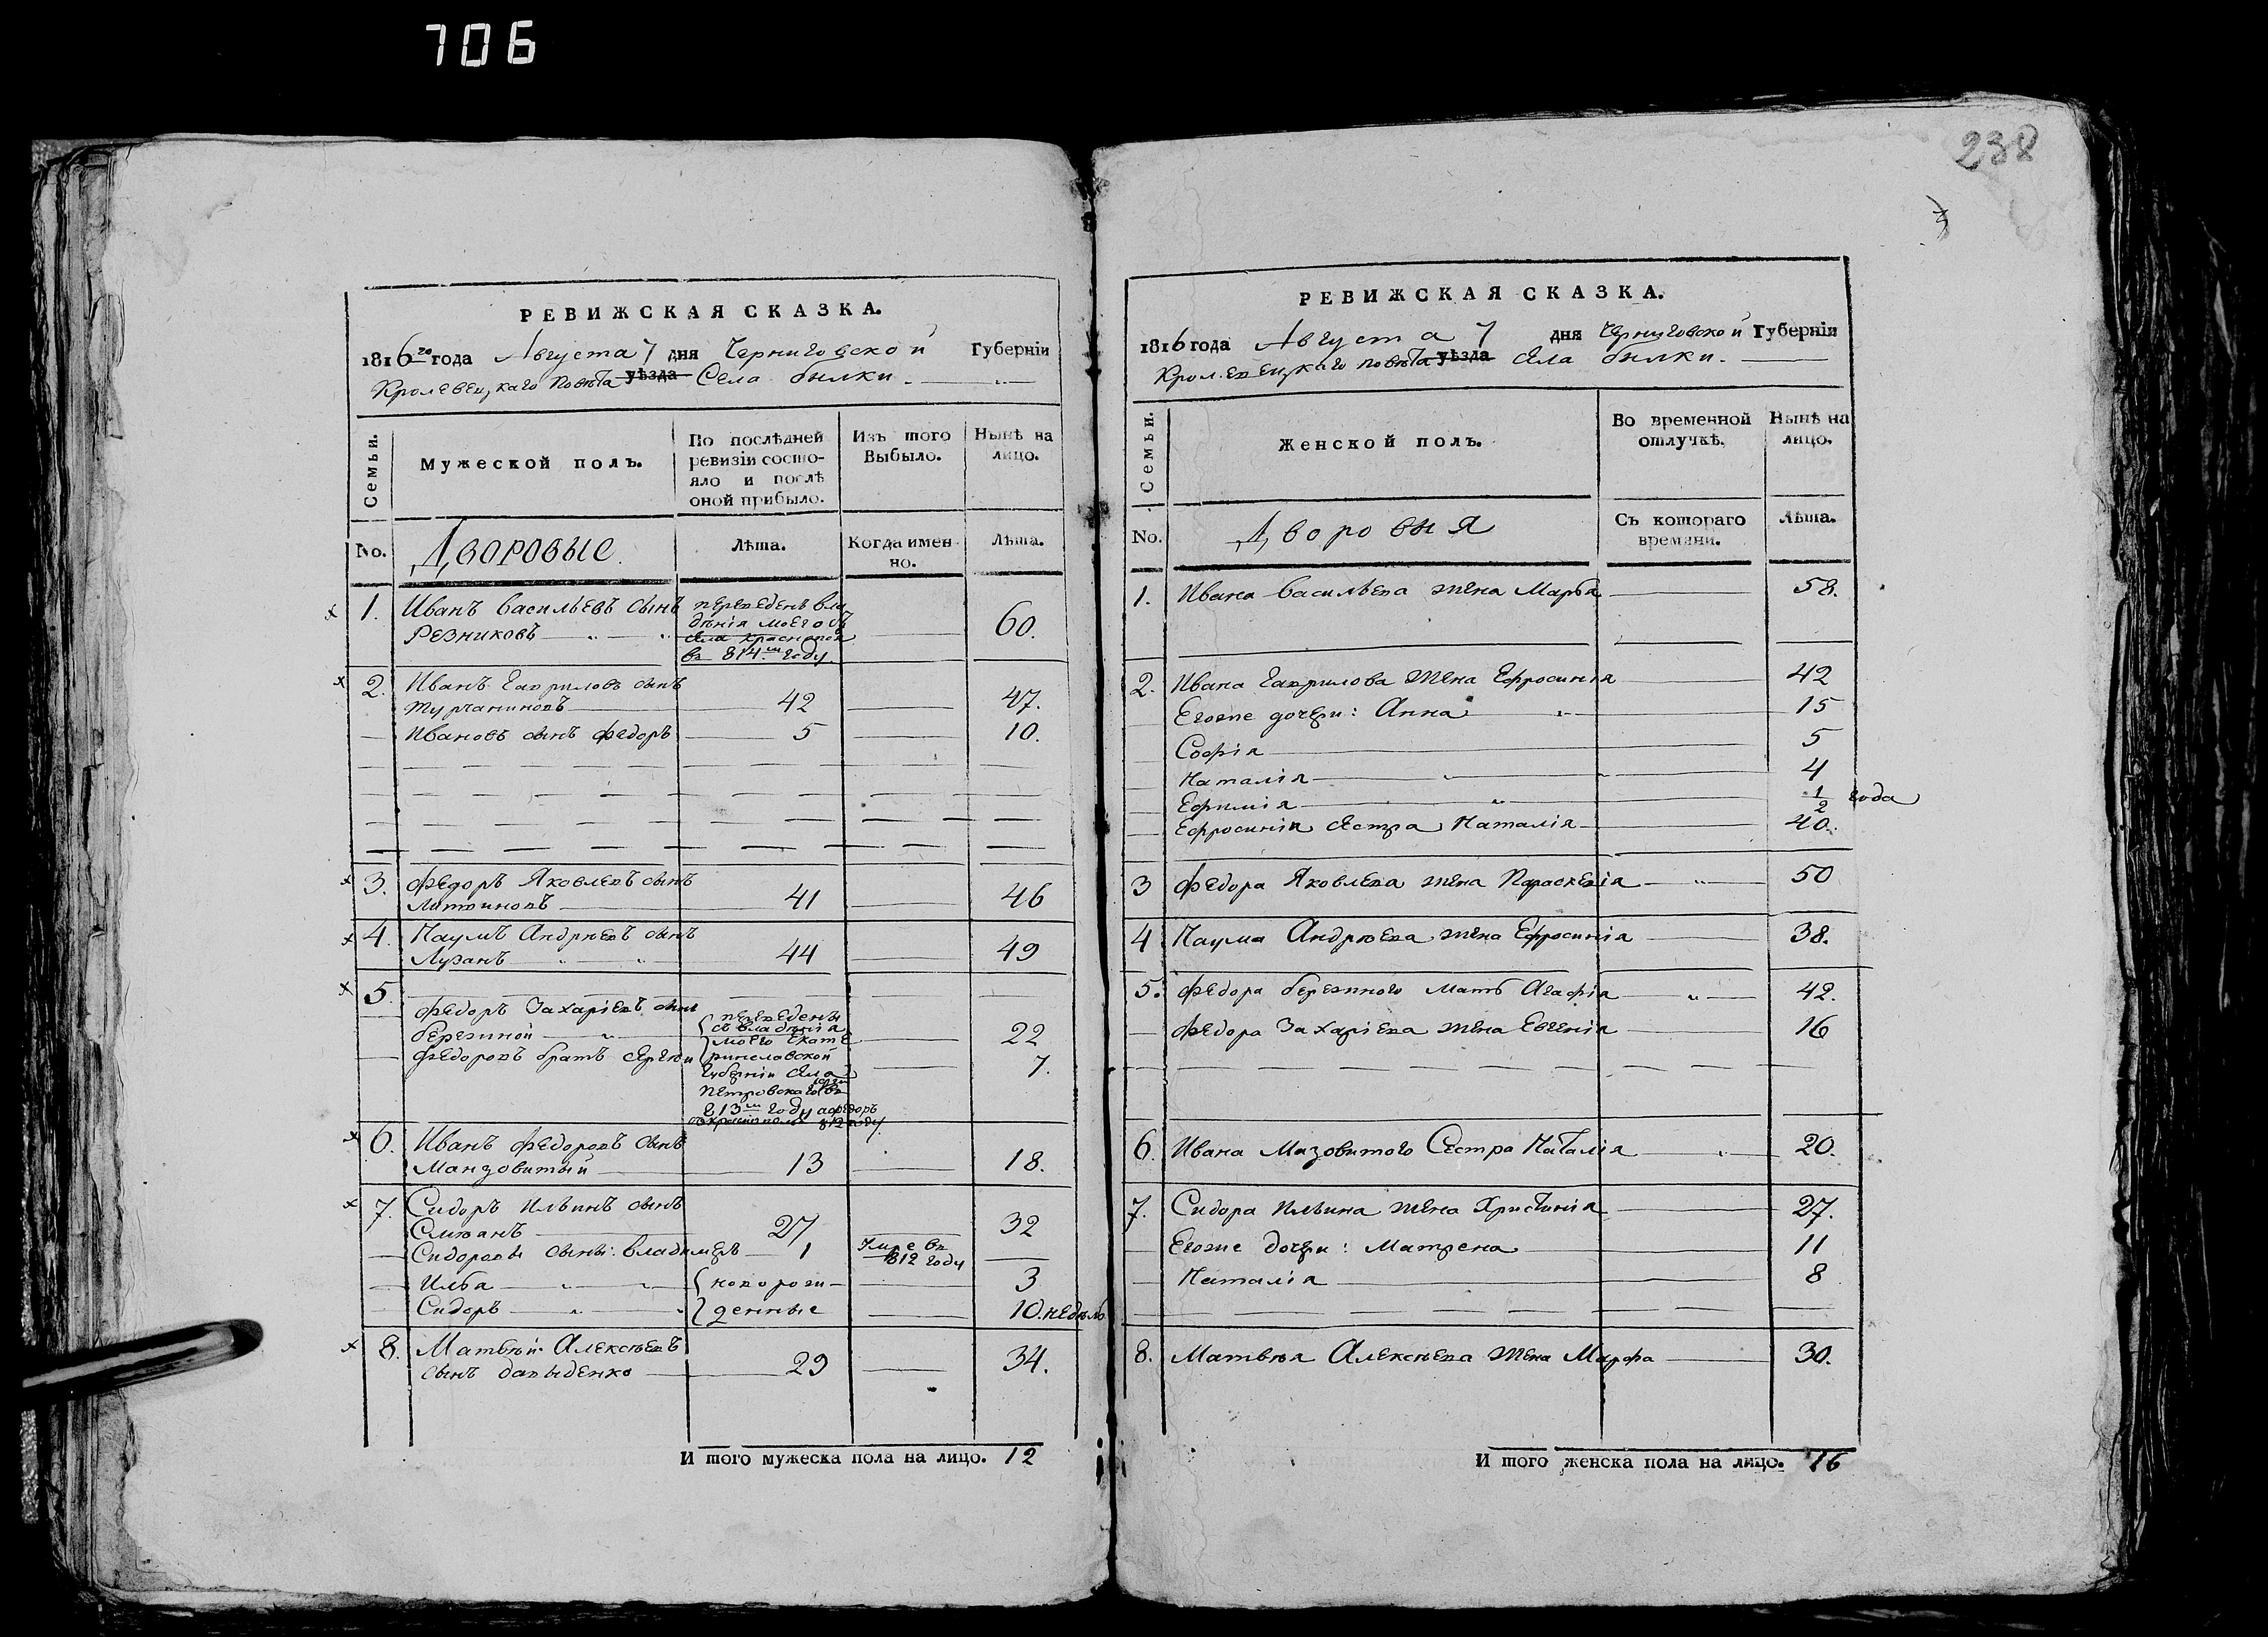 706
238
РЕВИЖСКАЯ СКАЗКА.
1816го года Августа 7 дня Черниговской Губерніи
Кролевецкаго Повѣта уѣзда Села былки.
Семьи.
Мужеской полъ.
По послѣдней ревизіи состояло и послѣ оной прибыло.
Изъ того Выбыло.
Нынѣ на лицо.
No.
Дворовые
Лѣта.
Когда именно.
Лѣта.
1. Иванъ Васильевъ сынъ переведенъ вла
Резниковъ дѣнія моего съ 60.
села краснопол
въ 814м году.
2. Иванъ Гавриловъ сынъ
турчаниновъ 42 47.
Ивановъ сынъ федоръ 5 10.
3. федоръ Яковлевъ сынъ
Литвиновъ 41 46
4. Наумъ Андрѣевъ сынъ
Лузанъ 44 49
5. федоръ Захаріевъ сынъ
березиной 22
федоровъ братъ сергѣи 7.
переведены
съ владѣнія
моего екате
ринславской
Губерніи села
петровскаго
813м году а федоръ
812 году
6. Иванъ федоровъ сынъ
Мандовитый 13 18.
7. Сидоръ Ильинъ сынъ
Слюзанъ 27 32
Сидоровы сыны: владимеръ 1 Умре въ 812 году
Илья новорож 3
Сидоръ денные 10. недѣль
8. Матвѣй Алексѣевъ
сынъ давыденко 29 34.
И того мужеска пола на лицо. 12
РЕВИЖСКАЯ СКАЗКА.
1816 года Августа 7 дня Черниговской Губерніи
Кролевецкаго повѣта уѣзда села былки.
Семьи.
Женской полъ.
Во временной отлучкѣ.
Нынѣ на лицо.
No.
Дворовыя
Съ котораго времяни.
Лѣта.
1. Ивана Васильева жена Марфа 58.
2. Ивана Гаврилова жена Ефросинія 42
Егоже дочери: Анна 15
Софія 5
Наталія 4
Ефимія 1/2 года
Ефросиніи сестра Наталія 40.
3 федора Яковлева жена Параскевія 50
4 Наума Андрѣева жена Ефросинія 38.
5. федора березиного мать Агафія 42.
федора Захаріева жена Евгенія 16
6. Ивана Мазовитого Сестра Наталія 20.
7. Сидора Ильина жена Христинія 27.
Егоже дочери: Матрена 11
Наталія 8
8. Матвѣя Алексѣева жена Марфа 30.
И того женска пола на лицо. 16